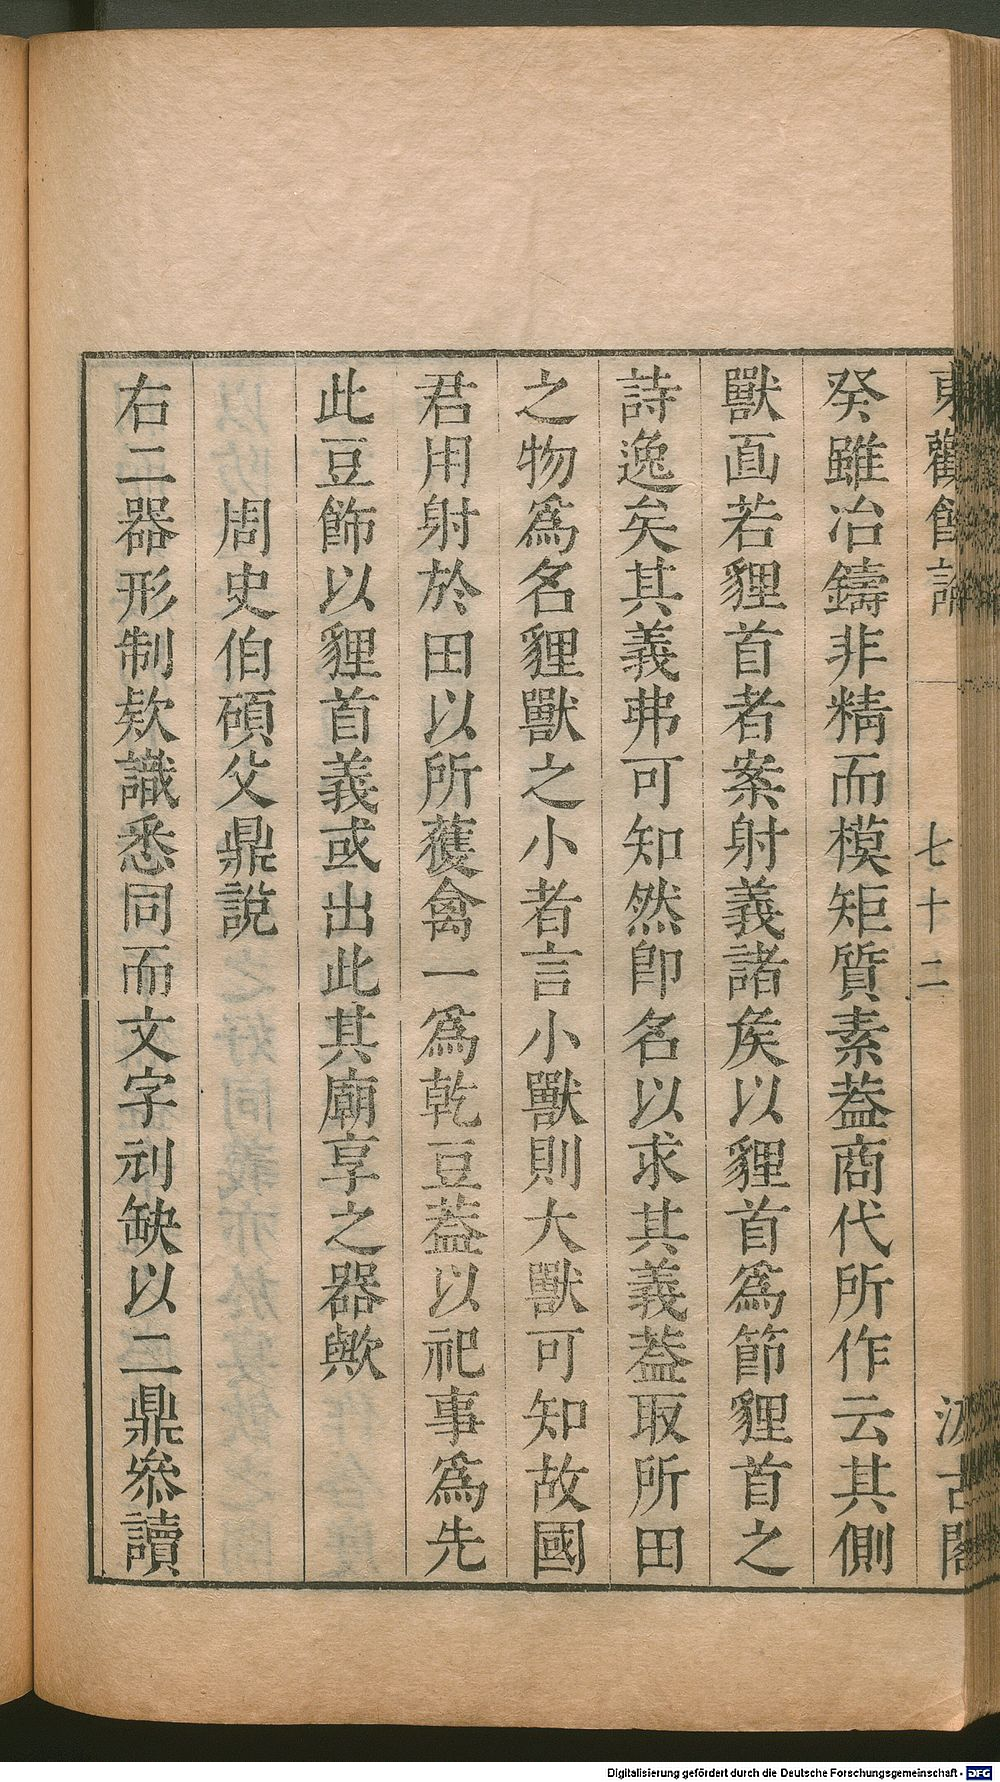 東觀餘論
七十二
汲古閣
癸雖冶鑄非精而模矩質素葢商代所作云其側
獸面若貍首者案射義諸矦以貍首爲節貍首之
詩逸矣其義弗可知然卽名以求其義葢取所田
之物爲名貍獸之小者言小獸則大獸可知故國
君用射於田以所獲禽一爲乾豆葢以祀事爲先
此豆飾以貍首義或出此其廟享之器歟
周史伯碩父鼎說
右二器形制欵識悉同而文字刓缺以二鼎叅讀
Digitalisierung gefördert durch die Deutsche Forschungsgemeinschaft - DFG